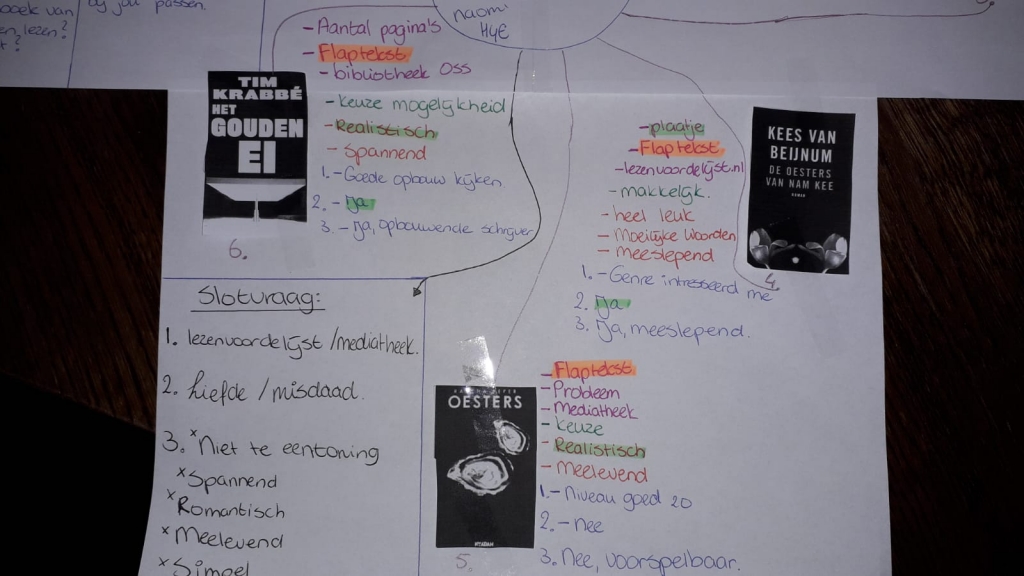 boek van
bij jou passen.
en lezen?
t?
naomi
H4E
- Aantal pagina's
- Flaptekst
- bibliotheek Oss
- keuze mogelijkheid
- Realistisch
- Spannend
1. - Goede opbouw kijken
2. - ja
3. - ja, opbouwende schrijver
TIM
KRABBÉ
HET
GOUDEN
EI
6.
- plaatje
- Flaptekst
- lezenvoordelijst.nl
- makkelijk.
- heel leuk
- Moeilijke woorden
- meeslepend
1. - Genre intresseerd me
2. ja
3. ja, meeslepend.
KEES VAN
BEIJNUM
DE OESTERS
VAN NAM KEE
ROMAN
4.
Slotvraag:
1. lezenvoordelijst / mediatheek.
2. Liefde / misdaad.
3. x Niet te eentonig
x Spannend
x Romantisch
x Meelevend
x Simpel
OESTERS
5.
- Flaptekst
- Probleem
- Mediatheek
- keuze
- Realistisch
- Meelevend
1. - Niveau goed zo
2. - nee
3. Nee, voorspelbaar.